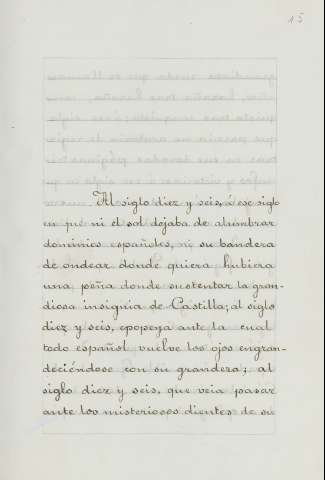 15
Al siglo diez y seis, á ese siglo
en que ni el sol dejaba de alumbrar
dominios españoles, ni su bandera
de ondear donde quiera hubiera
una peña donde sustentar la gran-
diosa insignia de Castilla; al siglo
diez y seis, epopeya ante la cual
todo español vuelve los ojos engran-
deciéndose con su grandeza; al
siglo diez y seis, que veia pasar
ante los misteriosos dientes de su